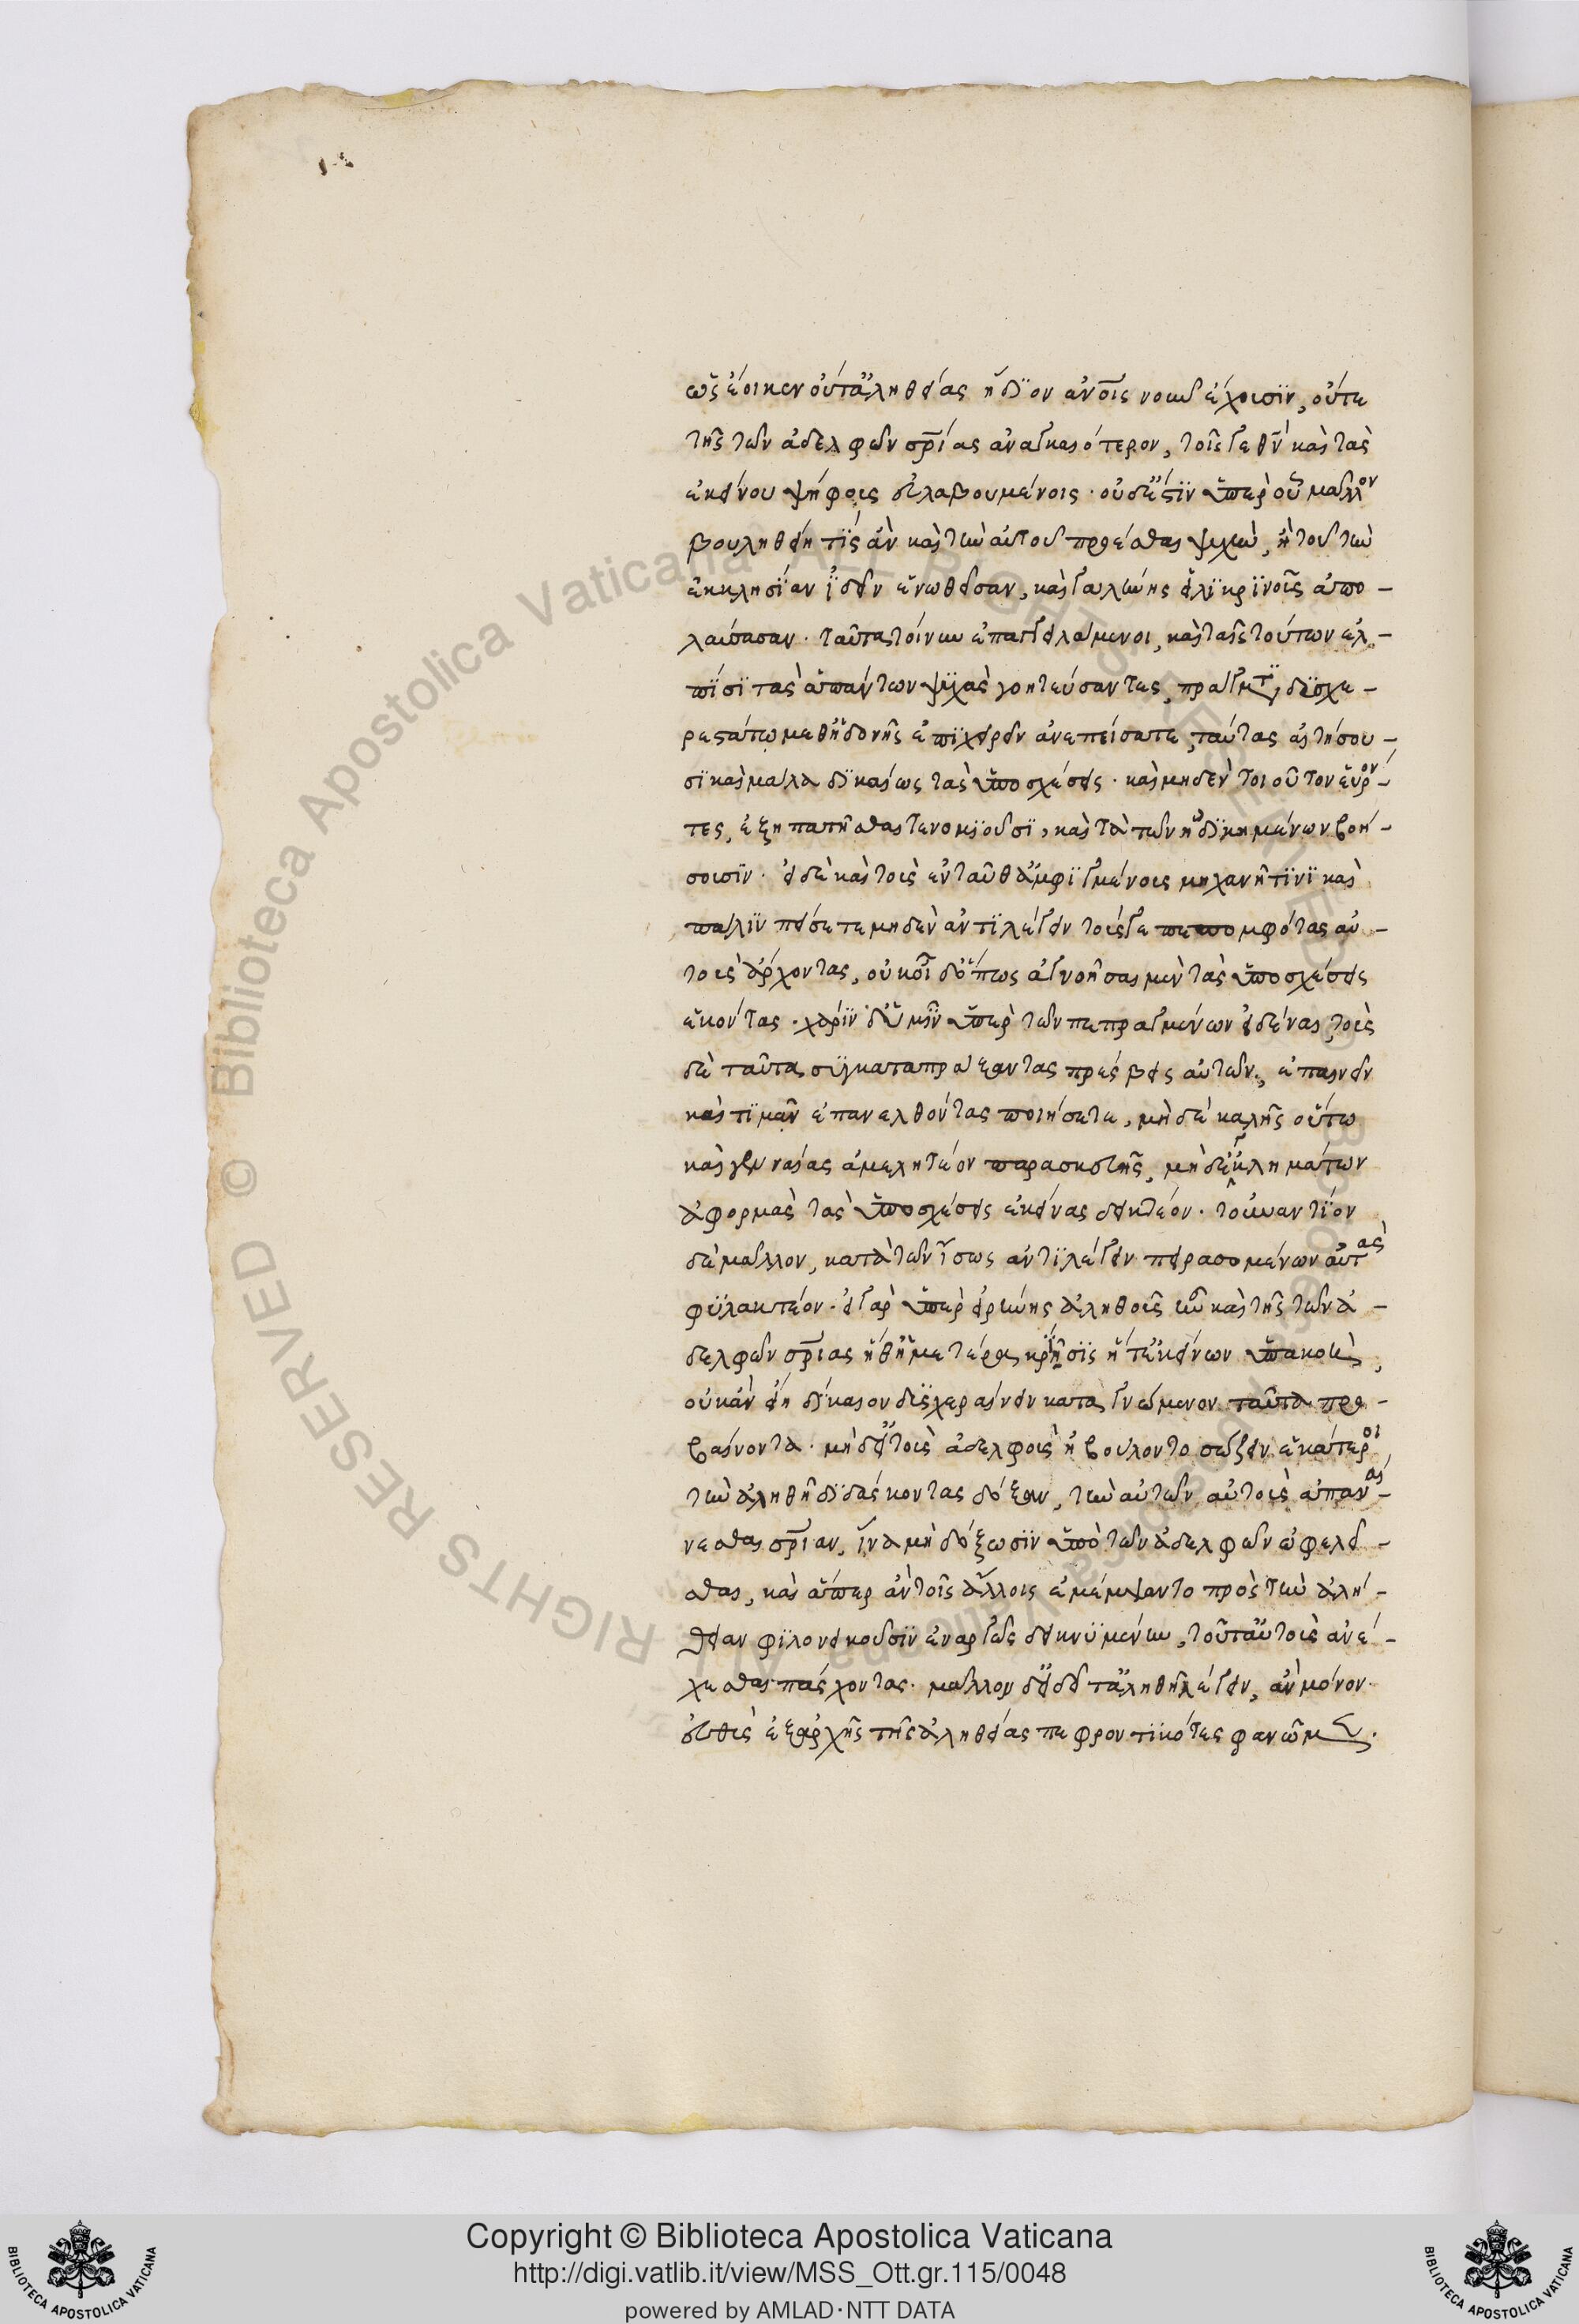 ὡς ἔοικεν οὔτ' ἀληθείας ἥδιον ἂν οἷς νοῦν ἔχουσιν, οὔτε
τῆς τῶν ἀδελφῶν σρίας ἀναγκαιότερον, τοῖς γε θν καὶ τὰς
ἐκείνου ψήφους εὐλαβουμένοις. οὐδ' ἔστιν ὑπὲρ οὗ μᾶλλον
βουληθείη τὶς ἂν καὶ τὴν αὐτοῦ προέσθαι ψυχὴν, ἢ τοῦ τὴν
ἐκκλησίαν ἰδεῖν ἑνωθεῖσαν, καὶ γαλήνης εἰλικρινοῦς ἀπο-
λαύσασαν. ταῦτα τοίνυν ἐπαγγειλάμενοι, καὶ ταῖς τούτων ἐλ-
πίσι τὰς ἁπάντων ψυχὰς γοητεύσαντες, πράγματι δυσχε-
ρεστάτῳ μεθ' ἡδονῆς ἐπιχειρεῖν ἀνεπείσατε, ταύτας αἰτήσου-
σι καὶ μάλα δικαίως τὰς ὑποσχέσεις. καὶ μηδὲν τοιοῦτον εὑρόν-
τες, ἐξηπατῆσθαι τε νομιοῦσι, καὶ τὰ τῶν ἠδικημένων βοή-
σουσιν. εἰ δὲ καὶ τοὺς ἐνταῦθ' ἀφιγμένους μηχανῇ τινὶ καὶ
πάλιν πείσετε μηδὲν ἀντιλέγειν τούς γε πεπομφότας αὐ-
τοὺς ἄρχοντας, οὐκ οἶδ' ὅπως ἀγνοῆσαι μὲν τὰς ὑποσχέσεις
ἑκόντας. χάριν δ' ὑμῖν ὑπὲρ τῶν πεπραγμένων εἰδέναι, τοὺς
δὲ ταῦτα συγκαταπράξαντας πρέσβεις αὐτῶν, ἐπαινεῖν
καὶ τιμᾶν ἐπανελθόντας ποιήσετε, μὴ δὲ καλῆς οὕτω
καὶ γενναίας ἀμελητέον παρασκευῆς, μὴ δ' ἐγκλημάτων
ἀφορμὰς τὰς ὑποσχέσεις ἐκείνας δεικτέον. τοὐναντίον
δὲ μᾶλλον, κατὰ τῶν ἴσως ἀντιλέγειν πειρασομένων αὐτὰς
φυλακτέον. εἰ γὰρ ὑπὲρ εἰρήνης ἀληθοῦς ἦν καὶ τῆς τῶν ἀ-
δελφῶν σρίας ἥθ' ἡμετέρα κρίσις ἥτ' ἐκείνων ὑπακοὴ,
οὐκ ἂν εἴη δίκαιον δυσχεραίνειν καταγνώμενον ταῦτα προ-
βαίνοντα. μὴ δ' εἰ τοὺς ἀδελφοὺς ἠβούλοντο σώζειν ἑκάτεροι
τὴν ἀληθῆ διδάσκοντας δόξαν, τὴν αὐτῶν αὐτοὺς ἀπαναί-
νεσθαι σρίαν, ἵνα μὴ δόξωσιν ὑπὸ τῶν ἀδελφῶν ὠφελεῖ-
σθαι, καὶ ἅπερ ἂν τοῖς ἄλλοις ἐμέμψαντο πρὸς τὴν ἀλή-
θειαν φιλονεικοῦσιν ἐναργῶς δεικνυμένην, τοῦτ' αὐτοὺς ἀνέ-
χεσθαι πάσχοντας. μᾶλλον δ' εἰ δεῖ τἀληθῆ λέγειν, ἂν μόνον
εὐθὺς ἐξαρχῆς τῆς ἀληθείας πεφροντικότες φανῶμεν.
Copyright © Biblioteca Apostolica Vaticana
http://digi.vatlib.it/view/MSS_Ott.gr.115/0048
powered by AMLAD·NTT DATA
BIBLIOTECA APOSTOLICA VATICANA
BIBLIOTECA APOSTOLICA VATICANA